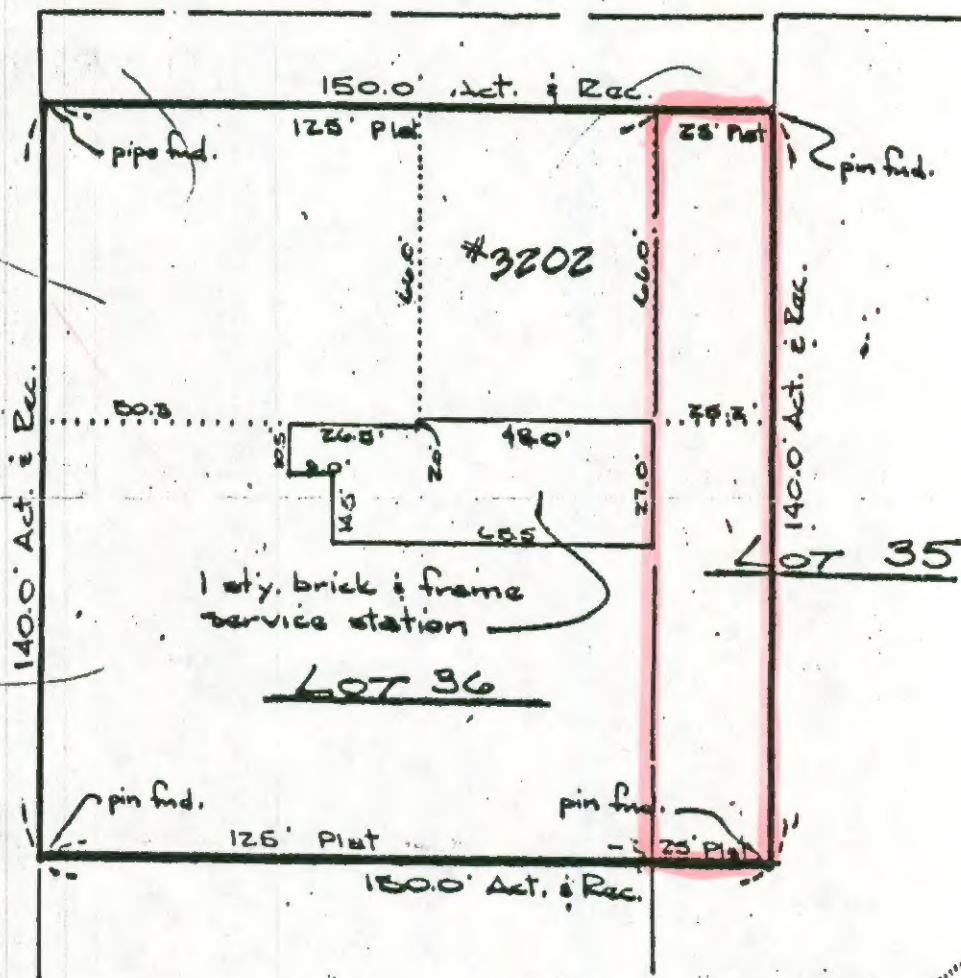 150.0' Act. & Rec.
125' Plat
25' Plat
pipe fnd.
pin fnd.
66.0'
#3202
66.0'
140.0' Act. & Rec.
140.0' Act. & Rec.
50.3
26.5'
48.0'
25.2'
10.5'
9.0'
2.0'
27.0'
14.5'
65.5
LOT 35
1 sty. brick & frame
service station
LOT 36
pin fnd.
pin fnd.
125' Plat
25' Plat
150.0' Act. & Rec.